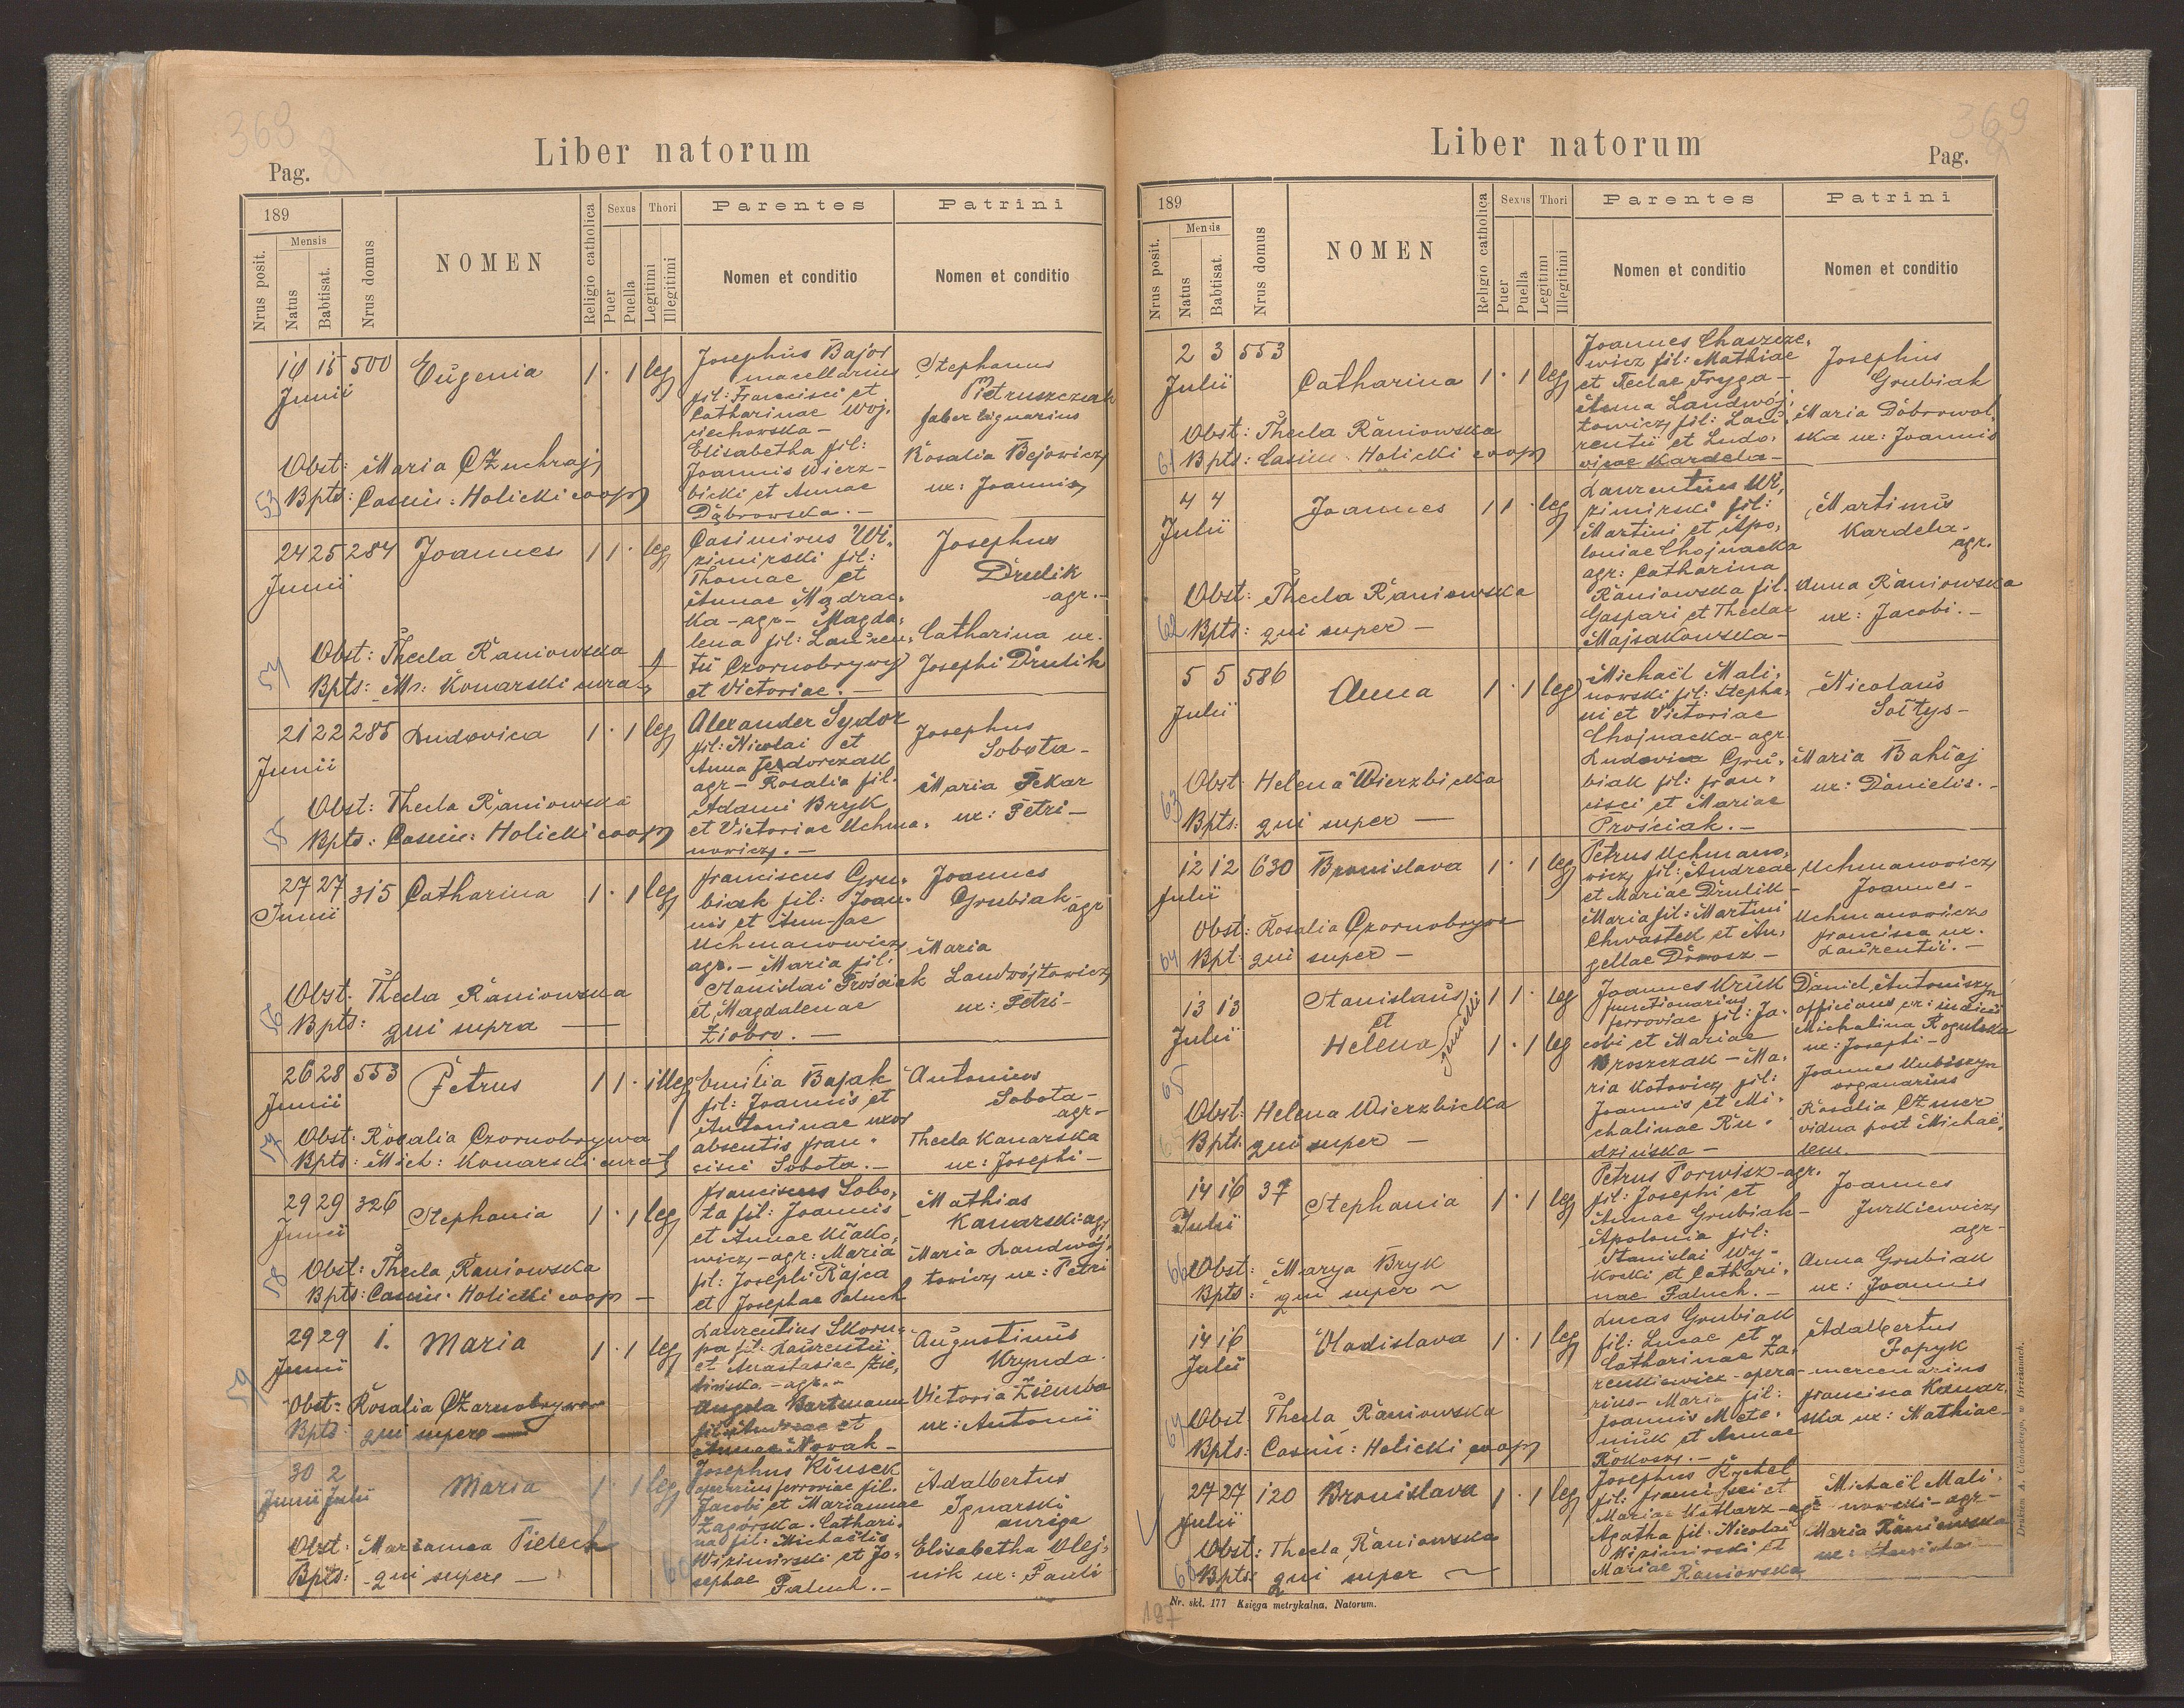 368
Liber natorum
Pag.
189
Nrus posit.
Mensis
Natus
Babtisat.
Nrus domus
NOMEN
Religio catholica
Sexus
Puer
Puella
Thori
Legitimi
Illegitimi
Parentes
Nomen et conditio
Patrini
Nomen et conditio
14 15 500 Eugenia 1 · 1 leg
Junii
Obst: Maria
53 Bpts: Casim: Holicki coop
Josephus Bajor
macellarius
fil: Francisci et
Catharinae Woj-
ciechowska -
Elisabetha fil:
Joannis Wierz-
bicki et Annae
Dąbrowska. -
Stephanus
Pietruszczak
faber lignarius
Rosalia Bejowicz
ux: Joannis
24 25 284 Joannes 1 1 · leg
Junii
Obst: Thecla Raniowska
54 Bpts: M: Konarski
Casimirus Wi-
zimirski fil:
Thomae et
Annae Mądrac-
ka - agr - Magda-
lena fil: Lauren-
tii Czornobrywy
et Victoriae. -
Josephus
Drulik
agr. -
Catharina ux.
Josephi Drulik
21 22 285 Ludovica 1 · 1 leg
Junii
Obst: Thecla Raniowska
55 Bpts: Casim: Holicki coop
Alexander Sydor
fil: Nicolai et
Anna Fedorczak
agr - Rosalia fil.
Adami Bryk
et Victoriae Uchma-
nowicz. -
Josephus
Sobota -
Maria Pekar
ux: Petri -
27 27 315 Catharina 1 · 1 leg
Junii
Obst. Thecla Raniowska
56 Bpts: qui supra
Franciscus Gru-
biak fil: Joan-
nis et Annae
Uchmanowicz
agr. - Maria fil:
Stanislai Prościak
et Magdalenae
Ziobro. -
Joannes
Grubiak agr
Maria
Landwójtowicz
ux: Petri -
26 28 553 Petrus 1 1 · illeg
Junii
Obst: Rosalia Czornobrywa
57 Bpts: Mich: Konarski
Emilia Bajak
fil: Joannis et
Antoninae uxor
absentis Fran-
cisci Sobota. -
Antonius
Sobota -
agr -
Thecla Kanarska
ux: Josephi -
29 29 326 Stephania 1 · 1 leg
Junii
Obst: Thecla Raniowska
58 Bpts: Casim: Holicki coop -
Franciscus Sobo-
ta fil: Joannis
et Annae Kłako-
wicz - agr: Maria
fil: Josephi Rajca
et Josephae Paluch
Mathias
Kanarski agr
Maria Landwój-
towicz ux: Petri
29 29 1. Maria 1 · 1 leg
Junii
59
Obst: Rosalia Czarnobrywa
Bpts: qui supra
Laurentius Skoru-
pa fil: Laurentii
et Anastasiae Zie-
lińska - agr. -
Angela Bartmann
fil: Andreae et
Annae Novak -
Augustinus
Krynda
Victoria Ziemba
ux: Antonii
30 2 Maria 1 · 1 leg
Junii Julii
Obst: Marianna Pielech
60 Bpts: qui supra -
Josephus Klusek
operarius ferroviae fil.
Jacobi et Mariannae
Zagórska. Cathari-
na fil: Michaëlis
Wizimirski et Jo-
sephae Paluch. -
Adalbertus
Ignarski
auriga
Elisabetha Olej-
nik ux: Pauli
369
Liber natorum
Pag.
189
Nrus posit.
Mensis
Natus
Babtisat.
Nrus domus
NOMEN
Religio catholica
Sexus
Puer
Puella
Thori
Legitimi
Illegitimi
Parentes
Nomen et conditio
Patrini
Nomen et conditio
2 3 553 Catharina 1 · 1 leg
Julii
Obst: Thecla Raniowska
61 Bpts: Casim: Holicki coop
Joannes Chaszcze-
wicz fil: Mathiae
et Teclae Fryga -
Anna Landwój-
towicz fil: Lau-
rentii et Ludo-
vicae Kardela -
Josephus
Grubiak
Maria Dobrowol-
ska ux: Joannis
4 4 Joannes 1 1 · leg
Julii
Obst: Thecla Raniowska
62 Bpts: qui super -
Laurentius Wi-
zimirski fil:
Martini et Apo-
loniae Chojnacka
agr: Catharina
Raniowska fil.
Gaspari et Theclae
Majsakowska -
Martinus
Kardela -
agr.
Anna Raniowska
ux: Jacobi. -
5 5 586 Anna 1 · 1 leg
Julii
Obst: Helena Wierzbicka
63 Bpts: qui super -
Michaël Mali-
nowski fil: Stepha-
ni et Victoriae
Chojnacka - agr.
Ludovica Gru-
biak fil: Fran-
cisci et Mariae
Prościak. -
Nicolaus
Sołtys -
Maria Bahłaj
ux: Danielis. -
12 12 630 Bronislava 1 · 1 leg
Julii
Obst: Rosalia Czornobrywa
64 Bpt: qui super -
Petrus Uchmano-
wicz fil: Andreae
et Mariae Drulik -
Maria fil: Martini
Chwastek et An-
gellae Domosz -
Uchmanowicz
Joannes -
Uchmanowicz
Francisca ux.
Laurentii. -
13 13 Stanislaus 1 1 · leg
Julii et
Helena 1 · 1 leg
gemelli
65
Obst: Helena Wierzbicka
Bpts: qui super -
Joannes Kruk
functionarius
ferroviae fil: Ja-
cobi et Mariae
Broszczak - Ma-
ria Kotowicz fil:
Joannis et Mi-
chalinae Ru-
dzińska -
Daniel Antoniszyn
Michalina Rogulska
ux: Josephi -
Joannes Kubiszyn
organarius
Rosalia Czmer
vidua post Michaë-
lem.
14 16 37 Stephania 1 · 1 leg
Julii
66 Obst: Marya Bryk
Bpts: qui super ~
Petrus Porwisz - agr.
fil: Josephi et
Annae Grubiak -
Apolonia fil:
Stanislai Wy-
kocki et Cathari-
nae Paluch. -
Joannes
Jurkiewicz
agr -
Anna Grubiak
ux: Joannis
14 16 Vladislava 1 · 1 leg
Julii
67 Obst: Thecla Raniowska
Bpts: Casim: Holicki coop
Lucas Grubiak
fil: Lucae et
Catharinae Za-
renkiewicz - opera-
rius - Maria fil:
Joannis Mete-
niuk et Annae
Rokosz. -
Adalbertus
Papyk
mercenarius
Francisca Kanar-
ska ux: Mathiae -
27 27 120 Bronislava 1 · 1 leg
Julii
Obst: Thecla Raniowska
68 Bpts: qui super ~
Josephus Rychel
fil: Francisci et
Maria Kotlarz - agr
Agatha fil: Nicolai
Wizimirski et
Mariae Raniowska
Michaël Mali-
nowski - agr -
Maria Raniowska
ux:
197
Nr. skł. 177 Księga metrykalna. Natorum.